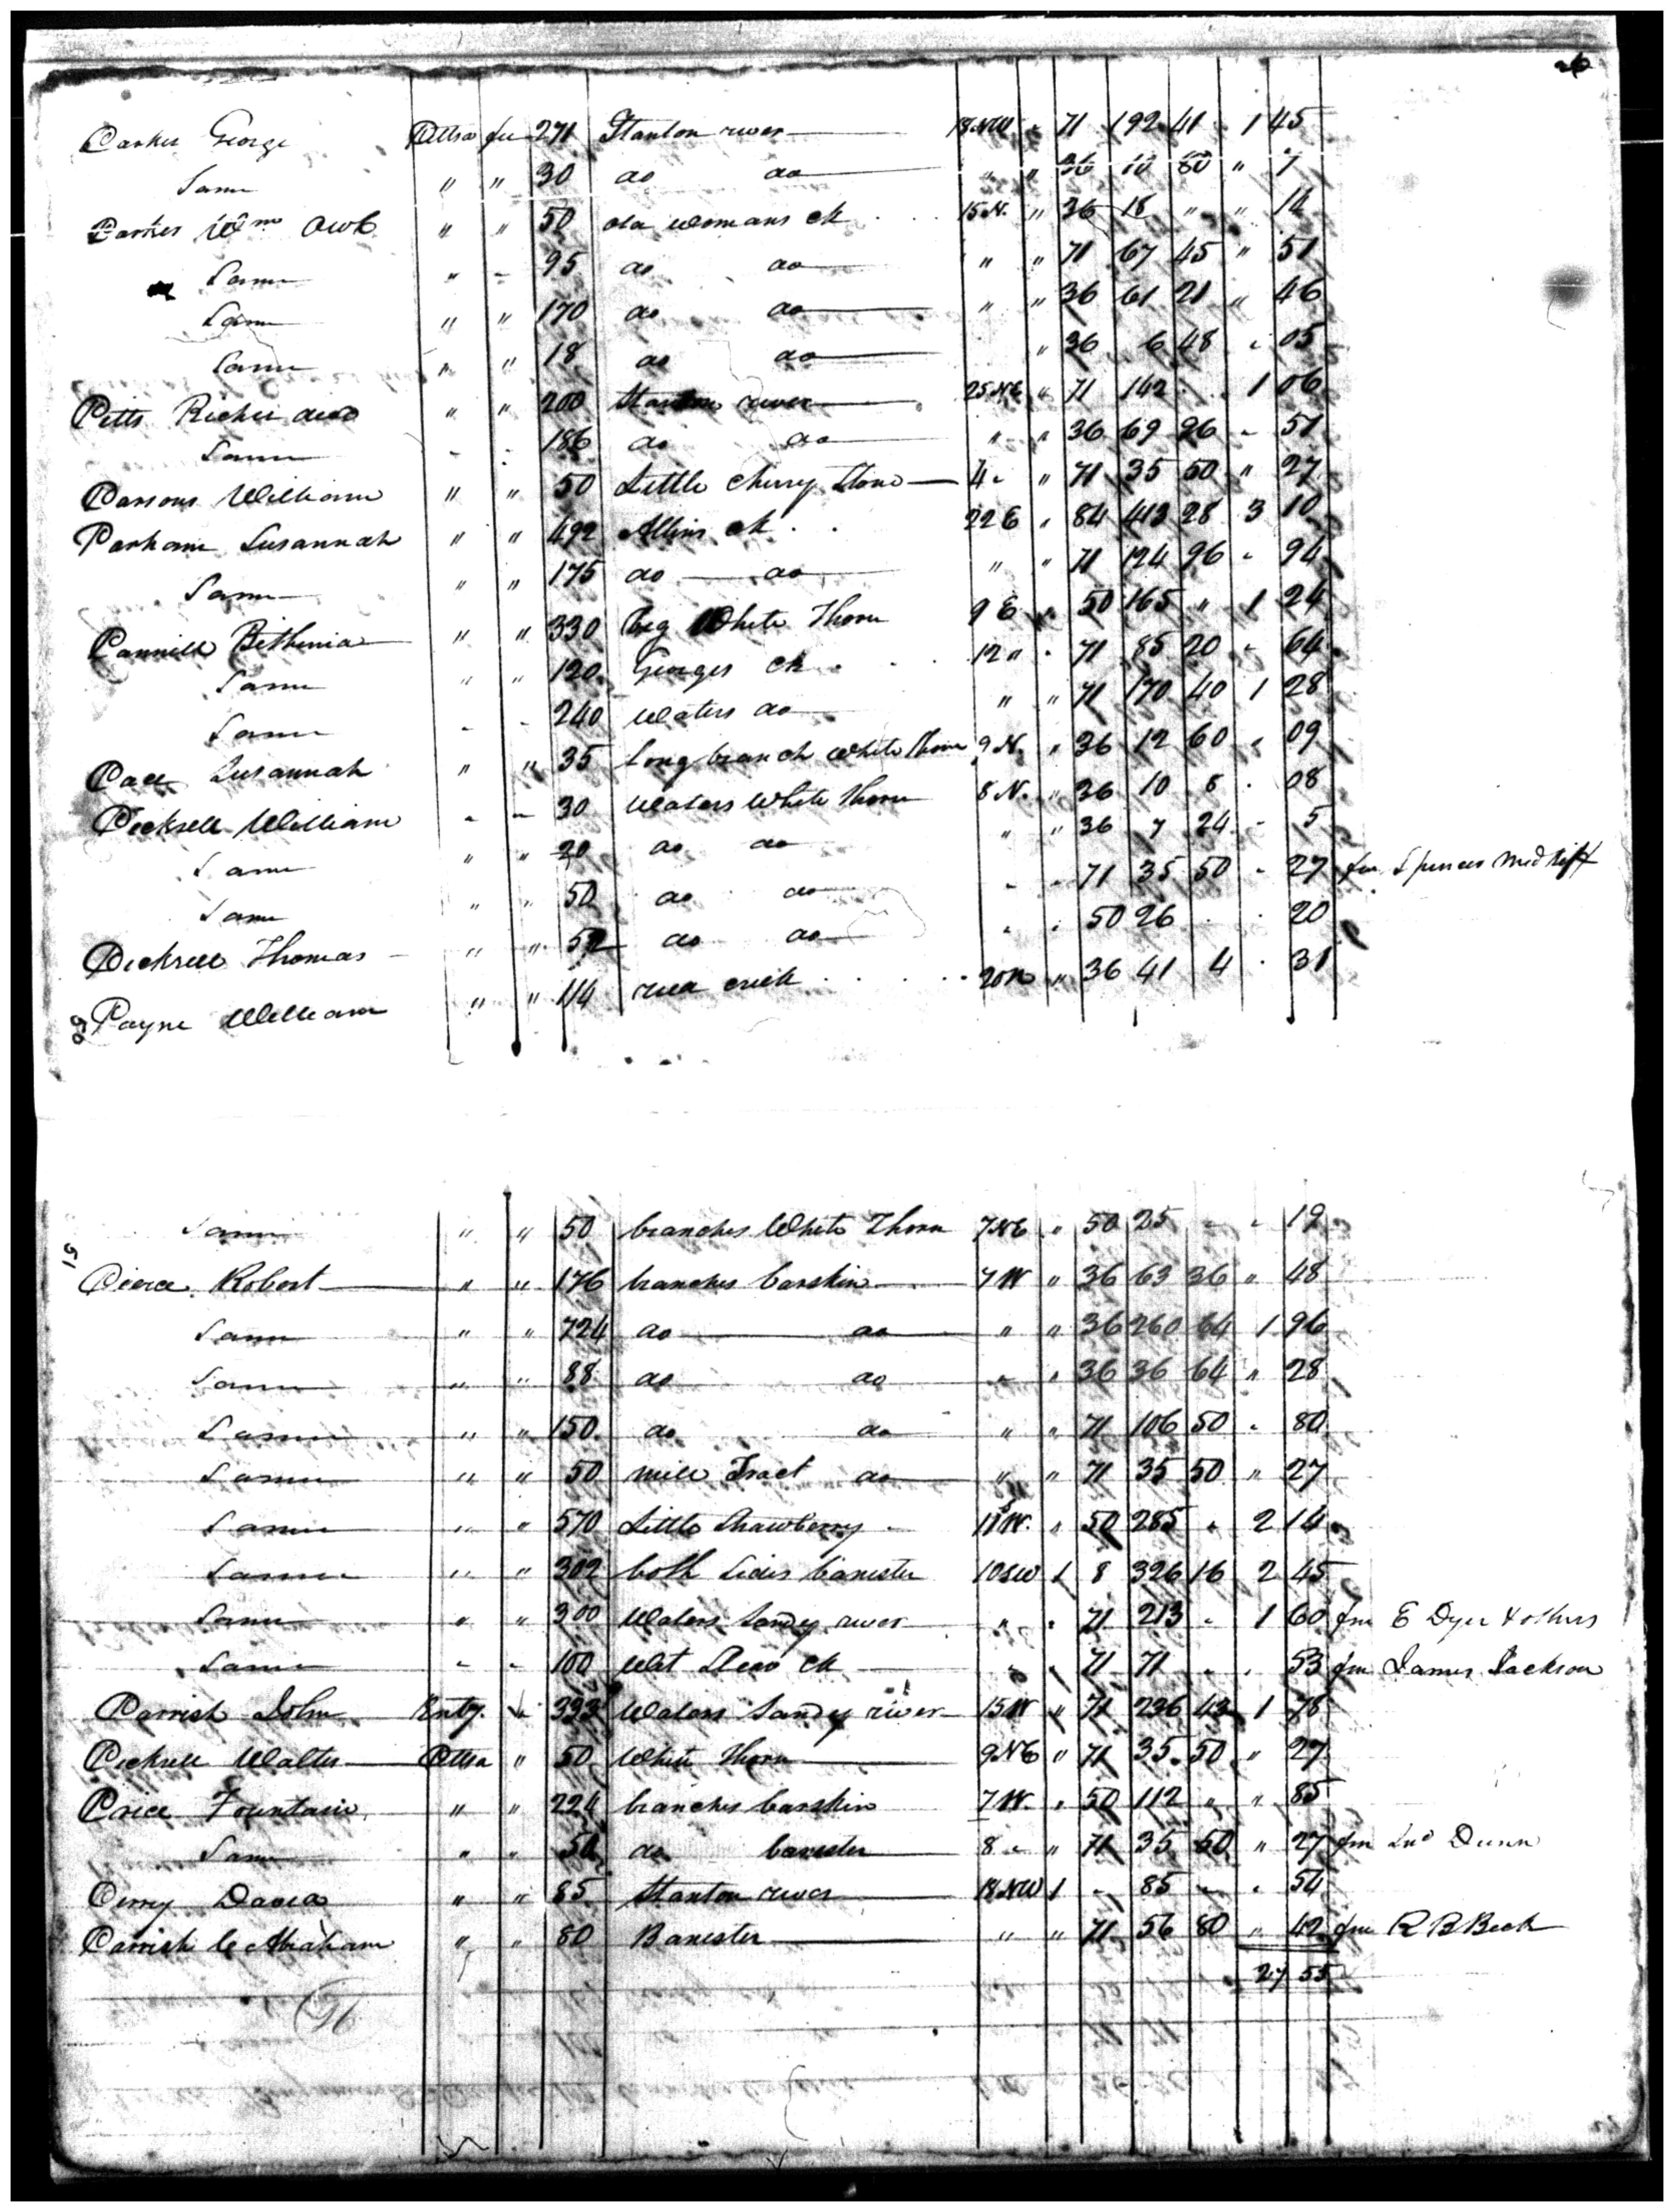 26
Parker George Pttsa fee 271 Stanton river 18 NW " 71 192 41 " 1 45
Same " " 30 do do " " 36 10 80 " 7
Parker Wm Owb " " 50 old womans ck 15 N. " 36 18 " " 14
Same " " 95 do do " " 71 67 45 " 51
Same " " 170 do do " " 36 61 21 " 46
Same " " 18 do do " 36 6 48 " 05
Pitts decd " " 200 Stanton river 25 NE " 71 142 1 06
Same " " 186 do do " " 36 69 96 " 51
Parsons William " " 50 Little Cherry Stone 4 " " 71 35 50 " 27
Parham Susannah " " 492 Allins ck 22 E " 84 413 28 3 10
Same " " 175 do do " " 71 124 96 " 94
Pannill Bethenia " " 330 Big White Thorn 9 E " 50 165 " 1 24
Same " " 120 Georges ck 12 " " 71 85 20 " 64
Same " " 240 Waters do " " 71 170 40 1 28
Pace Susannah " " 35 Long branch White Thorn 9 N. " 36 12 60 " 09
Pickrell William " " 30 Waters White Thorn 8 N. " 36 10 8 " 08
Same " " 20 do do " " 36 7 24 " 5
Same " " 50 do do " " 71 35 50 " 27 fm Spencer
Pickrell Thomas " " 52 do do " " 50 26 " " 20
50 Payne William " " 114 reed creek 20 N " 36 41 4 " 31
51 Same " " 50 branches White Thorn 7 NE " 50 25 " " 19
Pierce Robert " " 176 branches barskin 7 W " 36 63 36 " 48
Same " " 724 do do " " 36 260 64 1 96
Same " " 88 do do " " 36 36 64 " 28
Same " " 150 do do " " 71 106 50 " 80
Same " " 50 mill Tract do " " 71 35 50 " 27
Same " " 570 Little Strawberry W. " 50 285 " 2 14
Same " " 302 both sides banister 10 SW 1 8 326 16 2 45
Same " " 300 Waters Sandy river " " 71 213 " 1 60 fm E Dyer & others
Same " " 100 ck " " 71 71 " " 53 fm James Jackson
Parrish John Entg. " 333 Waters Sandy river 15 W " 71 236 43 1 78
Pickrell Walter Pttsa " 50 White Thorn 9 NE " 71 35 50 " 27
Price Fountain " " 224 branches barskin 7 W. " 50 112 " " 85
Same " " 50 do banister 8 " " 71 35 50 " 27 fm Jno Dunn
Perry David " " 85 Stanton river 18 NW 1 " 85 " " 54
Parrish C Abraham " " 80 Banester " " 71 56 80 " 42 fm R B Beck
27 55